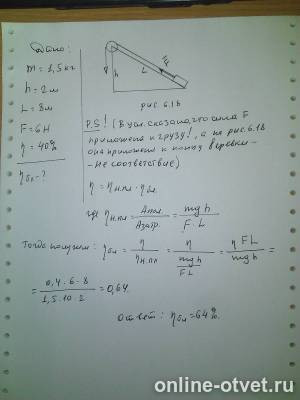 Дано:
m = 1,5 кг
h = 2 м
L = 8 м
F = 6 Н
η = 40%
ηбл - ?
h
L
F
рис 6.1в
P.S! (В усл. сказано, что сила F
приложена к грузу!, а на рис. 6.1в
она приложена к концу веревки -
- не соответствие)
η = ηн.пл · ηбл.
где ηн.пл = Aпол / Aзатр. = mgh / F·L
Тогда получим: ηбл = η / ηн.пл = η / (mgh / FL) = ηFL / mgh =
= 0,4·6·8 / 1,5·10·2 = 0,64.
Ответ: ηбл = 64%.
online-otvet.ru